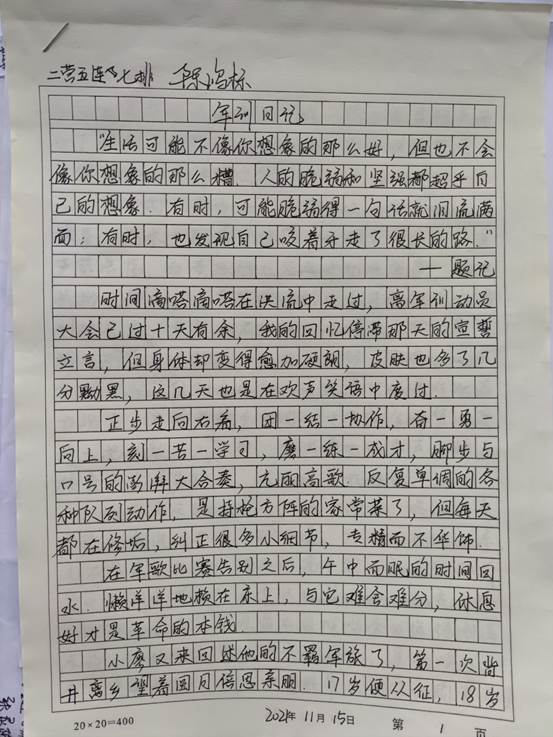 二营五连七排 陈鸿标
军训日记
“生活可能不像你想象的那么好，但也不会
像你想象的那么糟.人的脆弱和坚强都超乎自
己的想象.有时，可能脆弱得一句话就泪流满
面；有时，也发现自己咬着牙走了很长的路.”
——题记
时间滴嗒滴嗒在洪流中走过，离军训动员
大会已过十天有余，我的回忆停滞那天的宣誓
立言，但身体却变得愈加硬朗，皮肤也多了几
分黝黑，这几天也是在欢声笑语中度过.
正步走向右看，团一结一协作，奋一勇一
向上，刻一苦一学习，磨一练一成才，脚步与
口号的澎湃大合奏，亢丽高歌.反复单调的各
种队列动作，是持枪方阵的家常菜了，但每天
都在修垢，纠正很多小细节，专精而不华饰.
在军歌比赛告别之后，午中而眠的时间回
水.懒洋洋地赖在床上，与它难舍难分，休息
好才是革命的本钱.
小廖又来回述他的不羁军旅了，第一次背
井离乡望着圆月倍思亲朋.17岁便从征，18岁
20×20=400
2021年11月15日
第 1 页